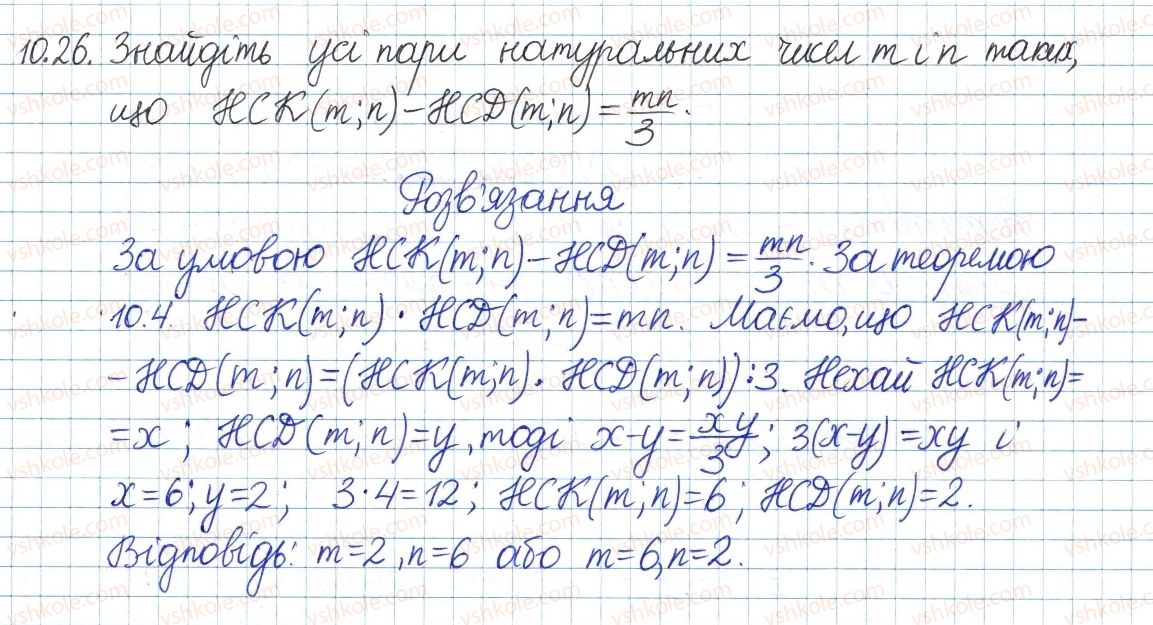 10.26. Знайдіть усі пари натуральних чисел m і n таких,
що НСК(m;n)-НСД(m;n)=mn/3.
Розв'язання
За умовою НСК(m;n)-НСД(m;n)=mn/3. За теоремою
10.4. НСК(m;n)·НСД(m;n)=mn. Маємо, що НСК(m;n)-
-НСД(m;n)=(НСК(m;n)·НСД(m;n)):3. Нехай НСК(m;n)=
=x; НСД(m;n)=y, тоді x-y=xy/3; 3(x-y)=xy і
x=6; y=2; 3·4=12; НСК(m;n)=6; НСД(m;n)=2.
Відповідь: m=2, n=6 або m=6, n=2.